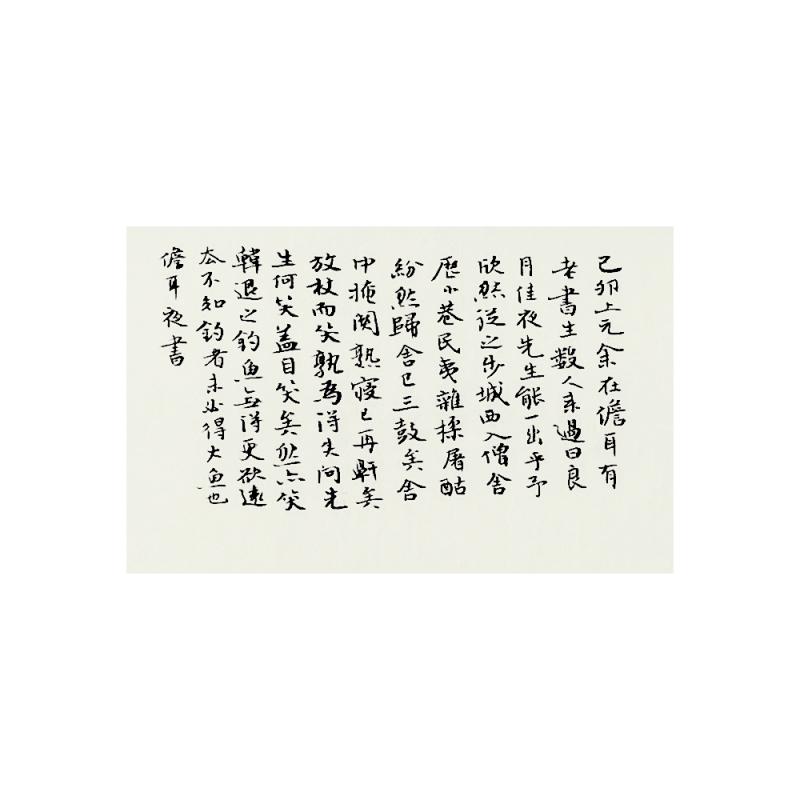 己卯上元余在儋耳有
老書生數人來過曰良
月佳夜先生能一出乎予
欣然從之步城西入僧舍
歷小巷民夷雜揉屠酤
紛然歸舍已三鼓矣舍
中掩關熟寢已再鼾矣
放杖而笑孰為得失問先
生何笑蓋自笑矣然亦笑
韓退之釣魚無得更欲遠
去不知釣者未必得大魚也
儋耳夜書